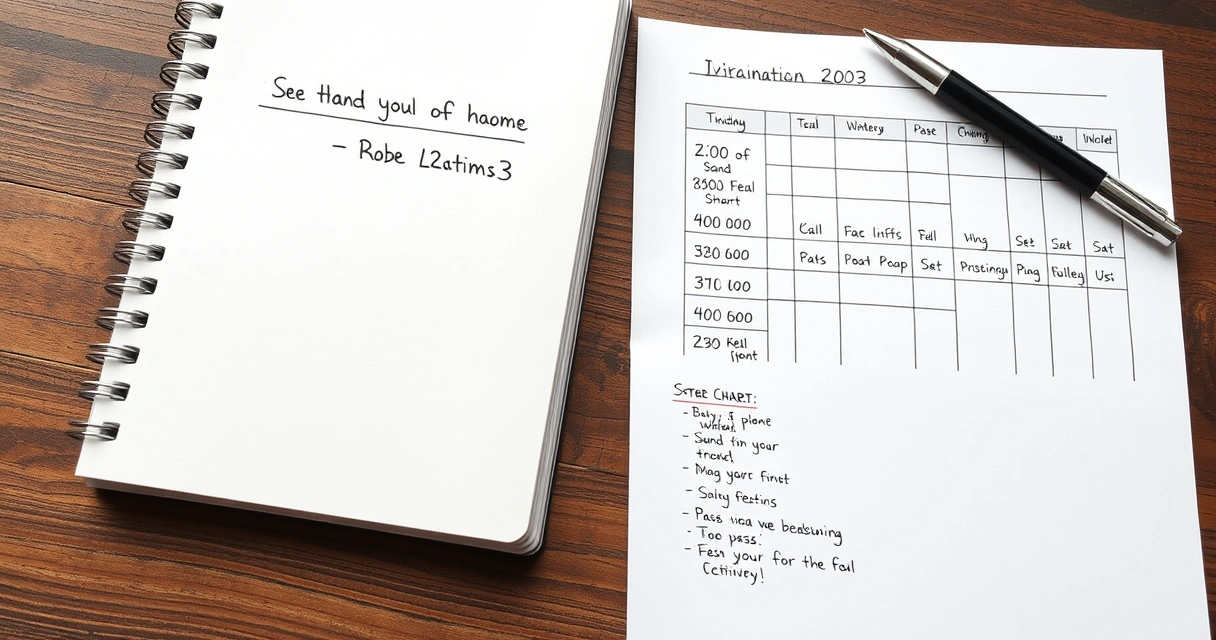 See Hand youl of haome
- Robe L2atims3
Iviraination 2003
Tcal Wintery Pase Wolet
2:00 of
Sand
3500 Feal
Shart
400 000 Call Fac Inffs Fell Wng Set Sat Sat
320 600 Pats Poat Poap Sat Pnstingy Ping Fulley Usi
370 600
400 600
230 Kell
front
SOTEE CHART:
- plone
- Sund tin your
- Mag yare finst
- Salky festins
- Pass tica we beasuring
- Too pass!
- Fesn your for the fall